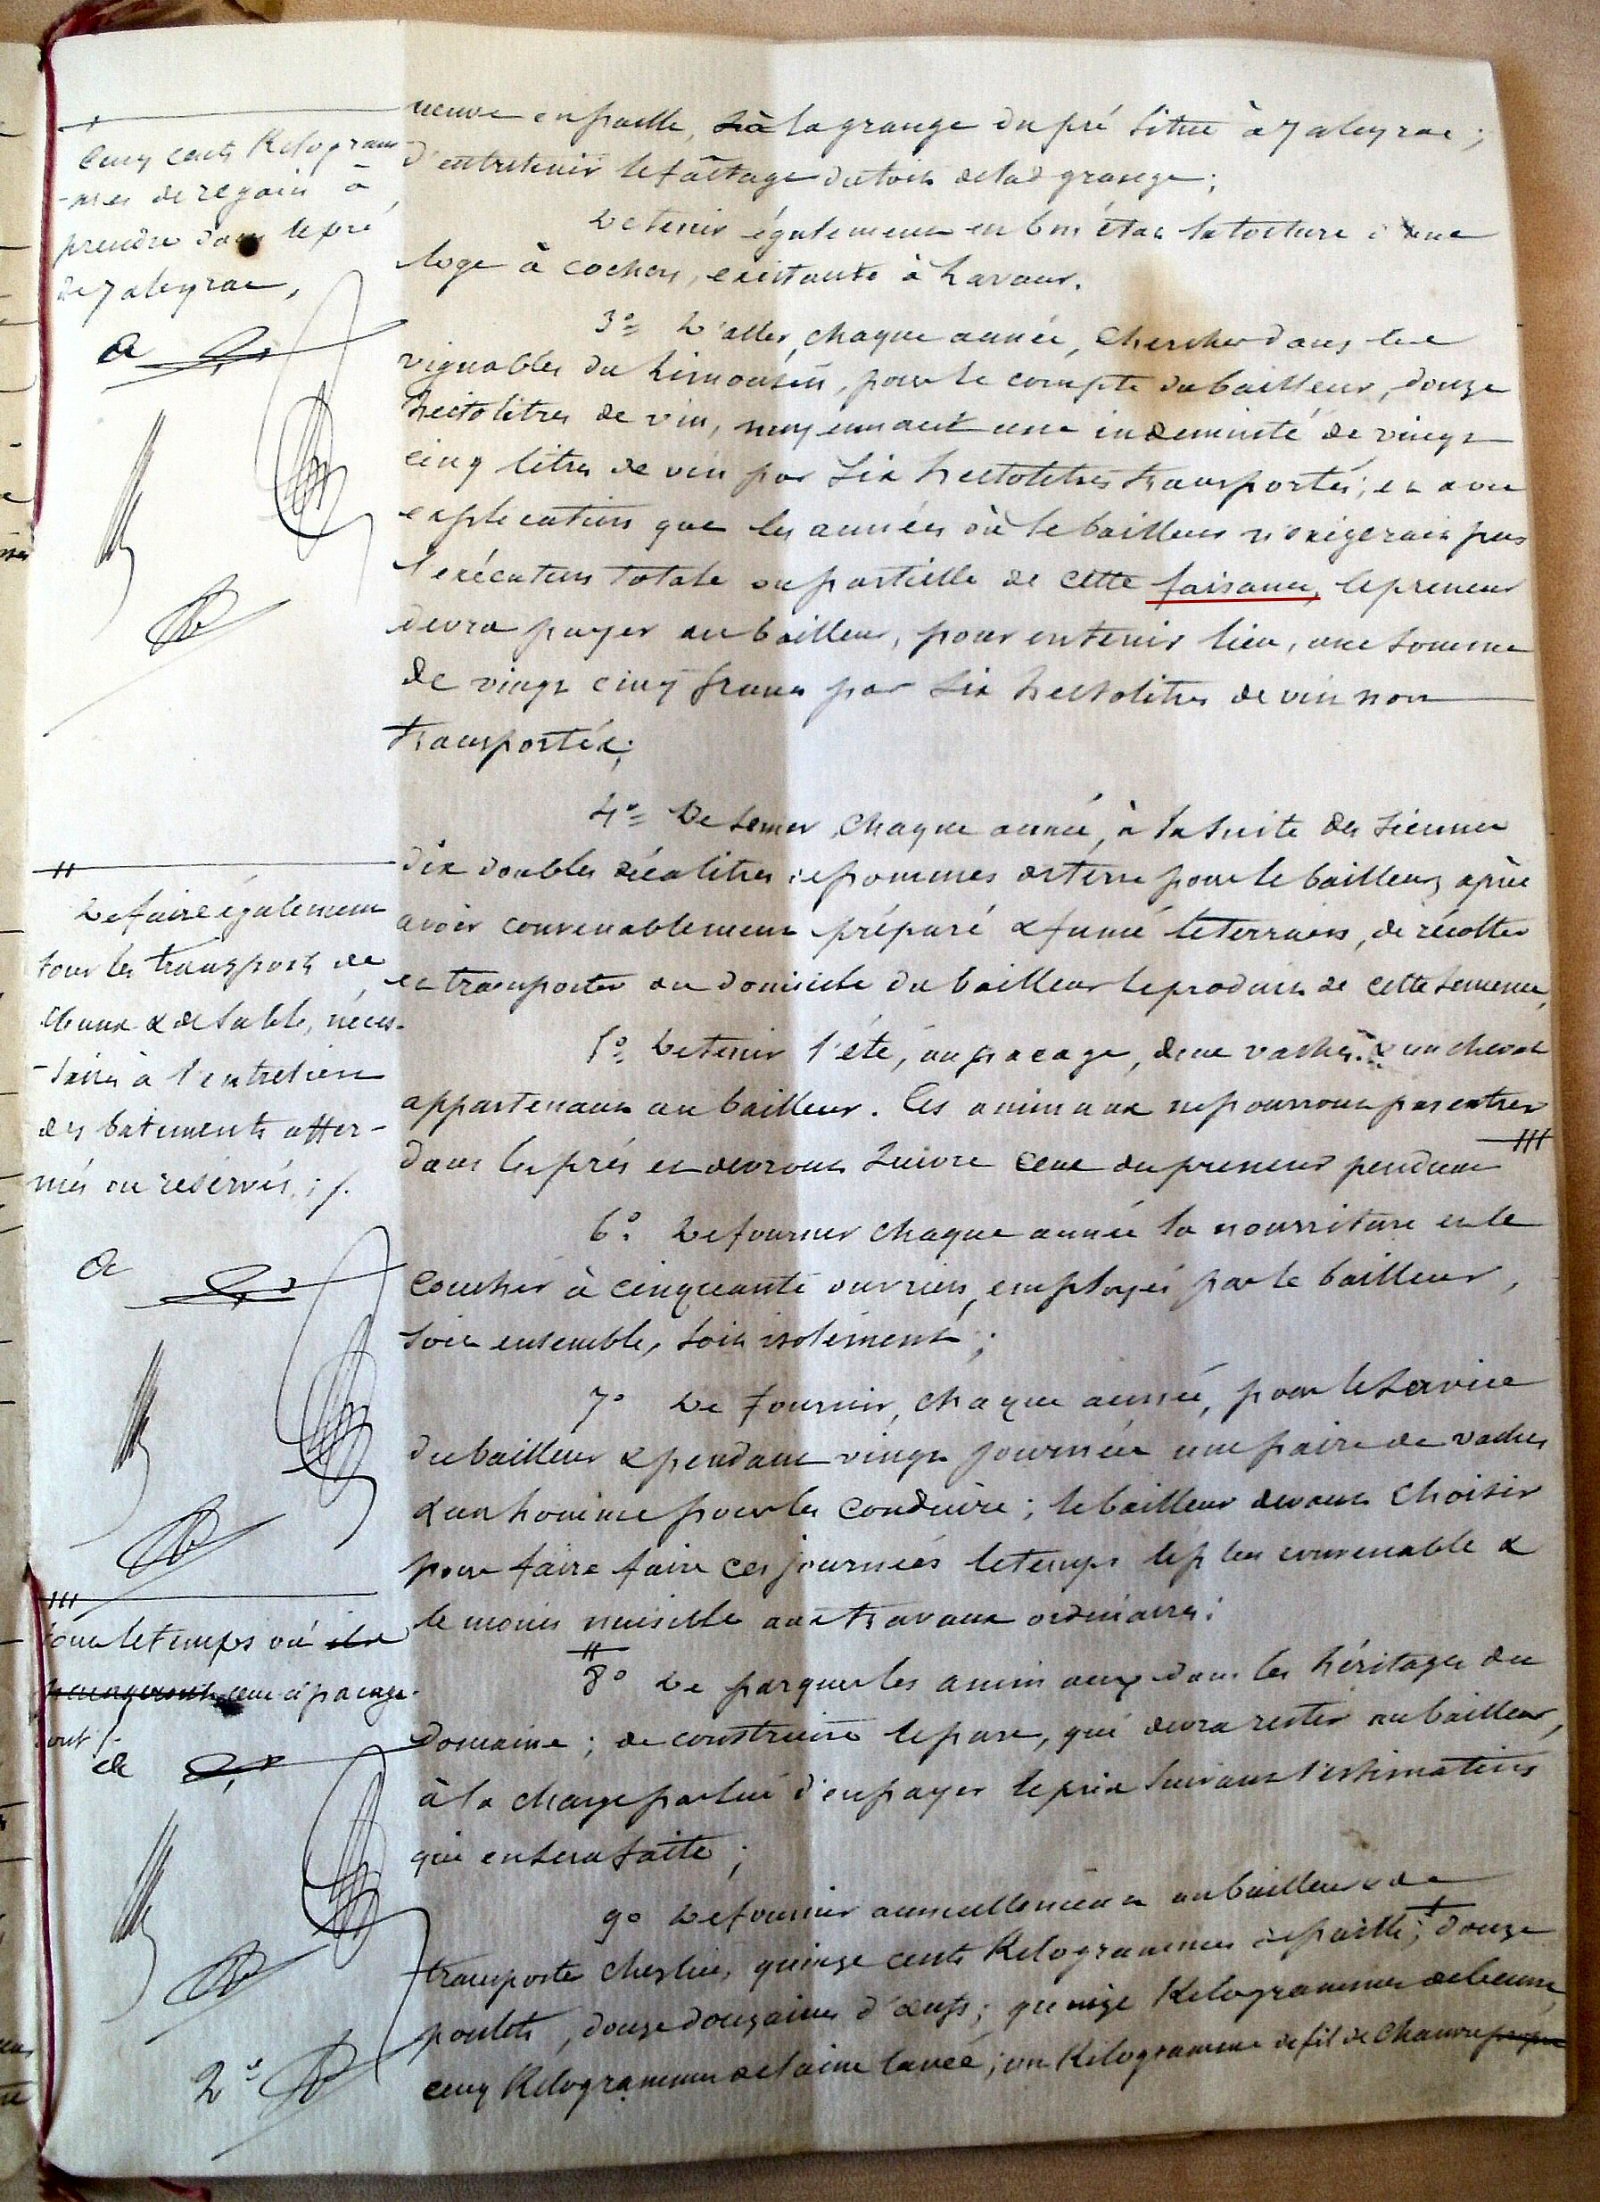 neuve en paille, à la grange du pré situé à Jaleyrac ;
d'entretenir le faîtage du toit de lad. grange ;
De tenir également en bon état la toiture d'une
loge à cochons, existante à Lavaur.
3° D'aller, chaque année, chercher dans les
vignobles du Limousin, pour le compte du bailleur, douze
hectolitres de vin, moyennant une indemnité de vingt
cinq litres de vin par six hectolitres transportés ; et avec
explication que les années où le bailleur n'exigerait pas
l'exécution totale ou partielle de cette faisance, le preneur
devra payer au bailleur, pour en tenir lieu, une somme
de vingt cinq francs par six hectolitres de vin non
transportés ;
4° De semer, chaque année, à la suite des siennes
dix doubles décalitres de pommes de terre pour le bailleur, après
avoir convenablement préparé & fumé le terrain, de récolter
et transporter au domicile du bailleur le produit de cette semence,
5° De tenir l'été, au pacage, deux vaches & un cheval
appartenant au bailleur. Ces animaux ne pourront pas entrer
dans les prés et devront suivre ceux du preneur pendant
6° De fournir chaque année la nourriture et le
coucher à cinquante ouvriers, employés par le bailleur,
soit ensemble, soit isolément ;
7° De fournir, chaque année, pour le service
du bailleur & pendant vingt journées une paire de vaches
& un homme pour les conduire ; le bailleur devant choisir
pour faire faire ces journées le temps le plus convenable &
le moins nuisible aux travaux ordinaires ;
8° De parquer les animaux dans les héritages du
domaine ; de construire le parc, qui devra rester au bailleur,
à la charge par lui d'en payer le prix suivant l'estimation
qui en sera faite ;
9° De fournir annuellement au bailleur & de
transporter chez lui, quinze cents Kilogrammes de paille ; douze
poulets, douze douzaines d'œufs ; quinze Kilogrammes de beurre,
cinq Kilogrammes de laine lavée ; un Kilogramme de fil de chanvre
Cinq cents Kilogram-
-mes de regain à
prendre dans le pré
de Jaleyrac,
De faire également
tous les transports de
chaux & de sable, néces-
-saires à l'entretien
des bâtiments affer-
més ou réservés ;
tout le temps où
ceux-ci pacage-
ront
2°